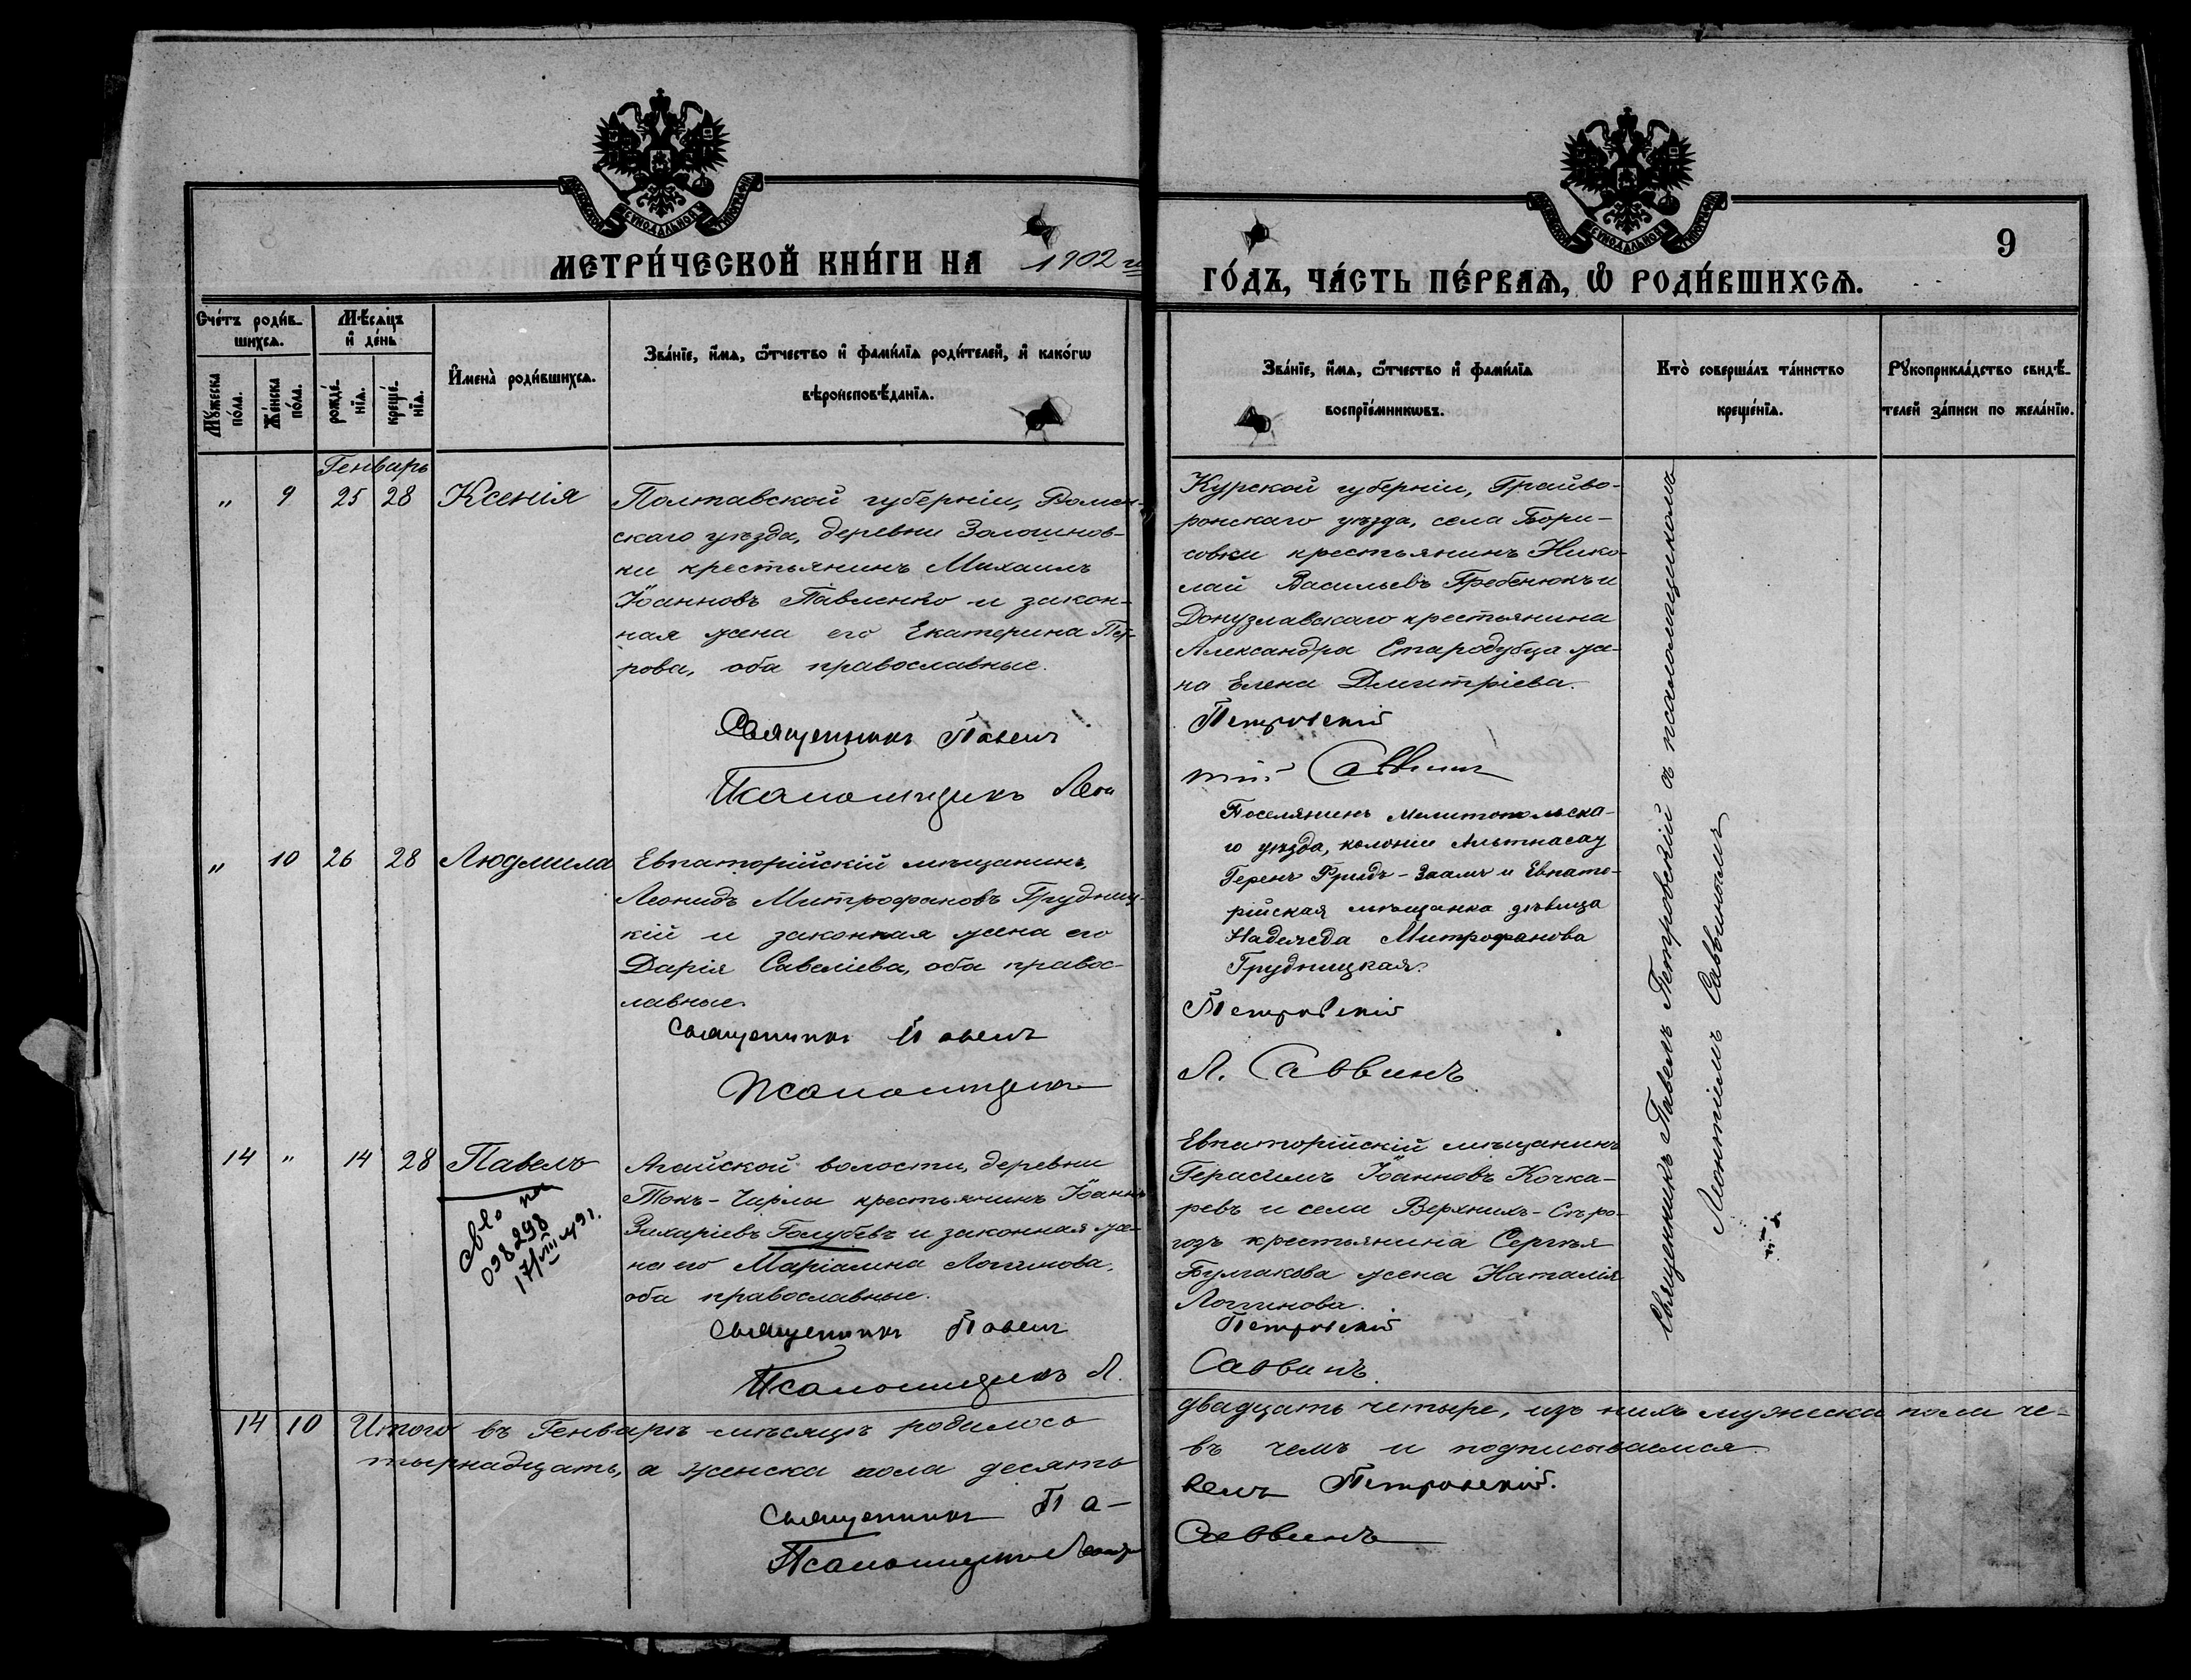 МЕТРИ́ЧЕСКОЙ КНИ́ГИ НА 1902 го
ГО́ДЪ, ЧА́СТЬ ПЕ́РВАѦ, Ѽ РОДИ́ВШИХСѦ.
9
Сче́тъ роди́в-
шихсѧ.
Мꙋ́жеска
по́ла.
Же́нска
по́ла.
Мѣ́сѧцъ
и҆ де́нь
рожде́-
нїѧ.
креще́-
нїѧ.
И҆мена̀ роди́вшихсѧ.
Зва́нїе, и҆́мѧ, ѻ҆́тчество и҆ фами́лїѧ роди́телей, и҆ како́гѡ
вѣроисповѣ́данїѧ.
Зва́нїе, и҆́мѧ, ѻ҆́тчество и҆ фами́лїѧ
воспрїе́мникѡвъ.
Кто̀ соверша́лъ та́инство
креще́нїѧ.
Рꙋкоприкла́дство свидѣ́-
телей за́писи по жела́нїю.
Генварь
" 9 25 28 Ксенія
Полтавской губерніи, Ромен-
скаго уѣзда, деревни Золошнов-
ки крестьянинъ Михаилъ
Іоанновъ Павленко и закон-
ная жена его Екатерина Пет-
рова, оба православные.
Священникъ Павелъ
Псаломщикъ Леон
Курской губерніи, Грайво-
ронскаго уѣзда, села Бори-
совки крестьянинъ Нико-
лай Васильевъ Гребенюкъ и
Донузлавскаго крестьянина
Александра Стародубца же-
на Елена Дмитріева.
Петровскій
тій Саввинъ
" 10 26 28 Людмила
Евпаторійскій мѣщанинъ
Леонидъ Митрофановъ Грудниц-
кій и законная жена его
Дарія Савеліева, оба правос-
лавные.
Священникъ Павелъ
Псаломщикъ
Поселянинъ Мелитопольска-
го уѣзда, колоніи Альтнасау
Геренъ Фридъ-Заамъ и Евпато-
рійская мѣщанка дѣвица
Надежда Митрофанова
Грудницкая.
Петровскій
Л. Саввинъ
14 " 14 28 Павелъ
св-во на
038298
17/VIII 49 г.
Агайской волости, деревни
Токъ-Чирлы крестьянинъ Іоаннъ
Захаріевъ Голубевъ и законная же-
на его Маріамна Логгинова,
оба православные.
Священникъ Павелъ
Псаломщикъ Л.
Евпаторійскій мѣщанинъ
Герасимъ Іоанновъ Кочка-
ревъ и села Верхнихъ-Сѣро-
гозъ крестьянина Сергѣя
Булгакова жена Наталія
Логгинова.
Петровскій
Саввинъ.
Священникъ Павелъ Петровскій съ псаломщикомъ
Леонтіемъ Саввинымъ
14 10 Итого въ Генварѣ мѣсяцѣ родилось
двадцать четыре, изъ нихъ мужеска пола че-
тырнадцать, а женска пола десять
въ чемъ и подписываемся.
Священникъ Па-
велъ Петровскій.
Псаломщикъ Леонтій
Саввинъ